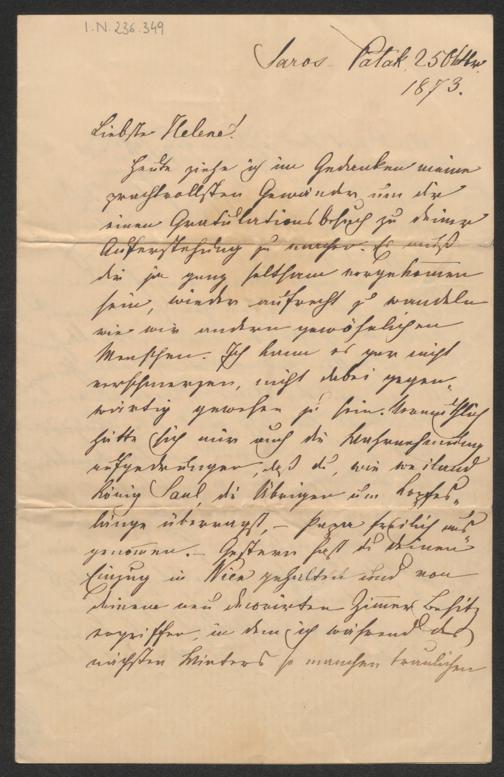 I.N. 236.349
Saros Patak, 25 Oktbr.
1873.
Liebste Helene!
Heute ziehe ich im Gedanken meine
prachtvollsten Gewänder um dir
einen Gratulationsbesuch zu deiner
Auferstehung zu machen. Es muß
dir ja ganz seltsam vorgekommen
sein, wieder aufrecht zu wandeln
wie wir andern gewöhnlichen
Menschen. Ich kann es gar nicht
verschmerzen, nicht dabei gegen-
wärtig gewesen zu sein. Unwillkürlich
hätte sich mir auch die Wahrnehmung
aufgedrungen, daß du, wie weiland
König Saul, die Übrigen um Kopfes-
länge überragst, – Papa freilich aus
genommen. – Gestern hast du deinen
Einzug in Wien gehalten und von
deinem neu decorirten Zimmer Besitz
ergriffen, in dem ich während des
nächsten Winters so manchen traulichen